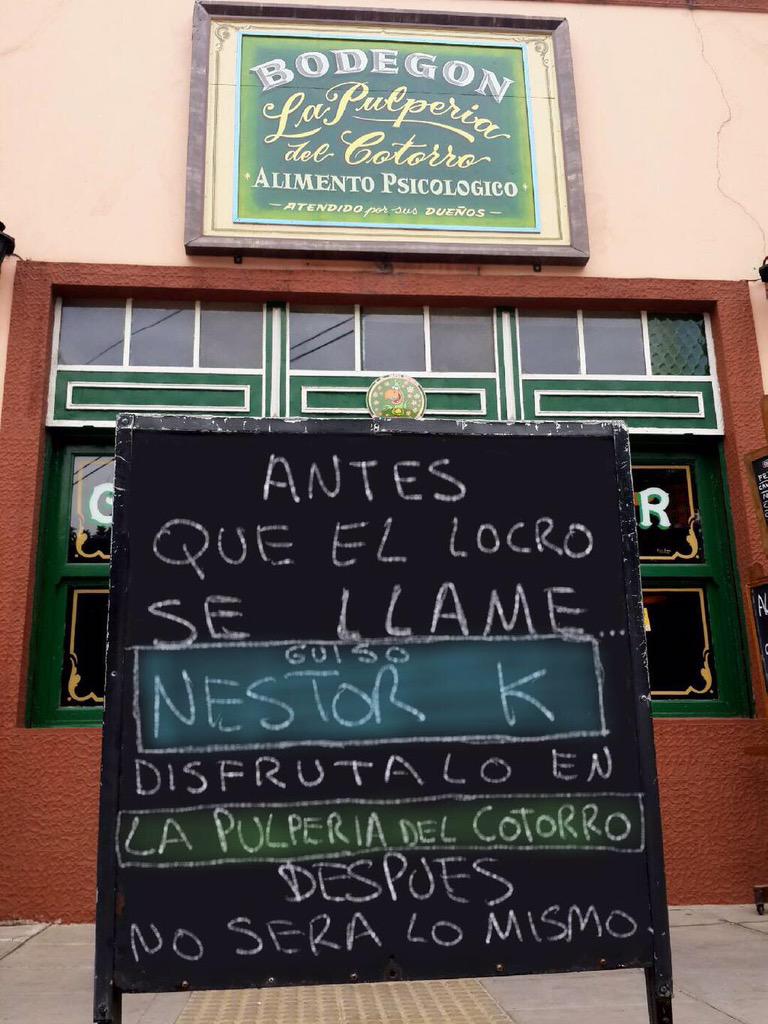 BODEGON
La Pulperia
del Cotorro
ALIMENTO PSICOLOGICO
ATENDIDO por sus DUEÑOS
ANTES
QUE EL LOCRO
SE LLAME...
GUISO
NESTOR K
DISFRUTALO EN
LA PULPERIA DEL COTORRO
DESPUES
NO SERA LO MISMO.